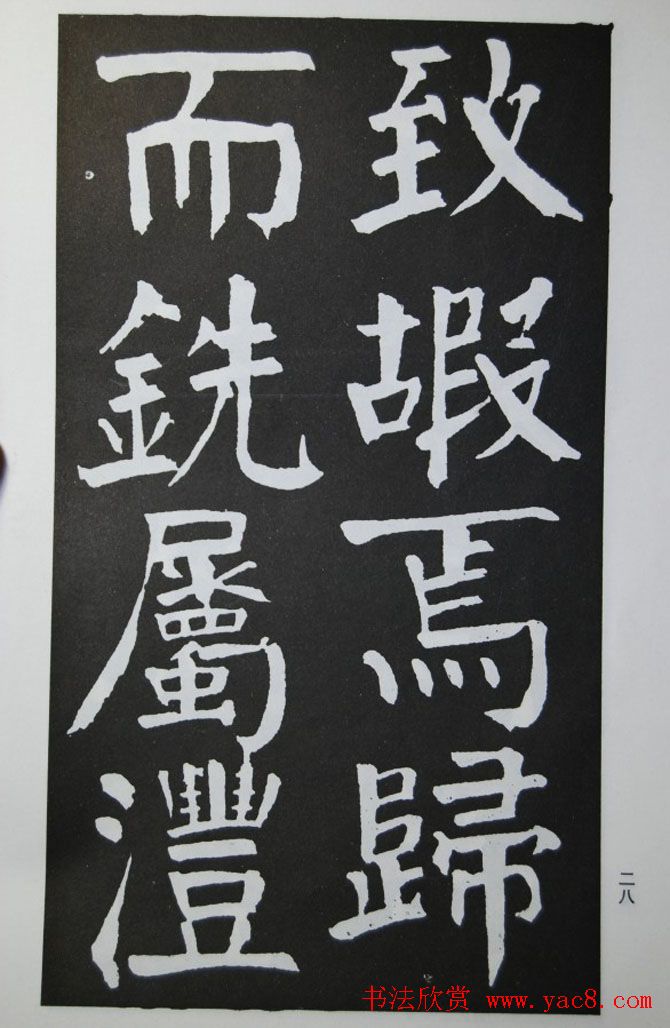 致嘏焉歸
而銑屬灃
二八
书法欣赏 www.yac8.com